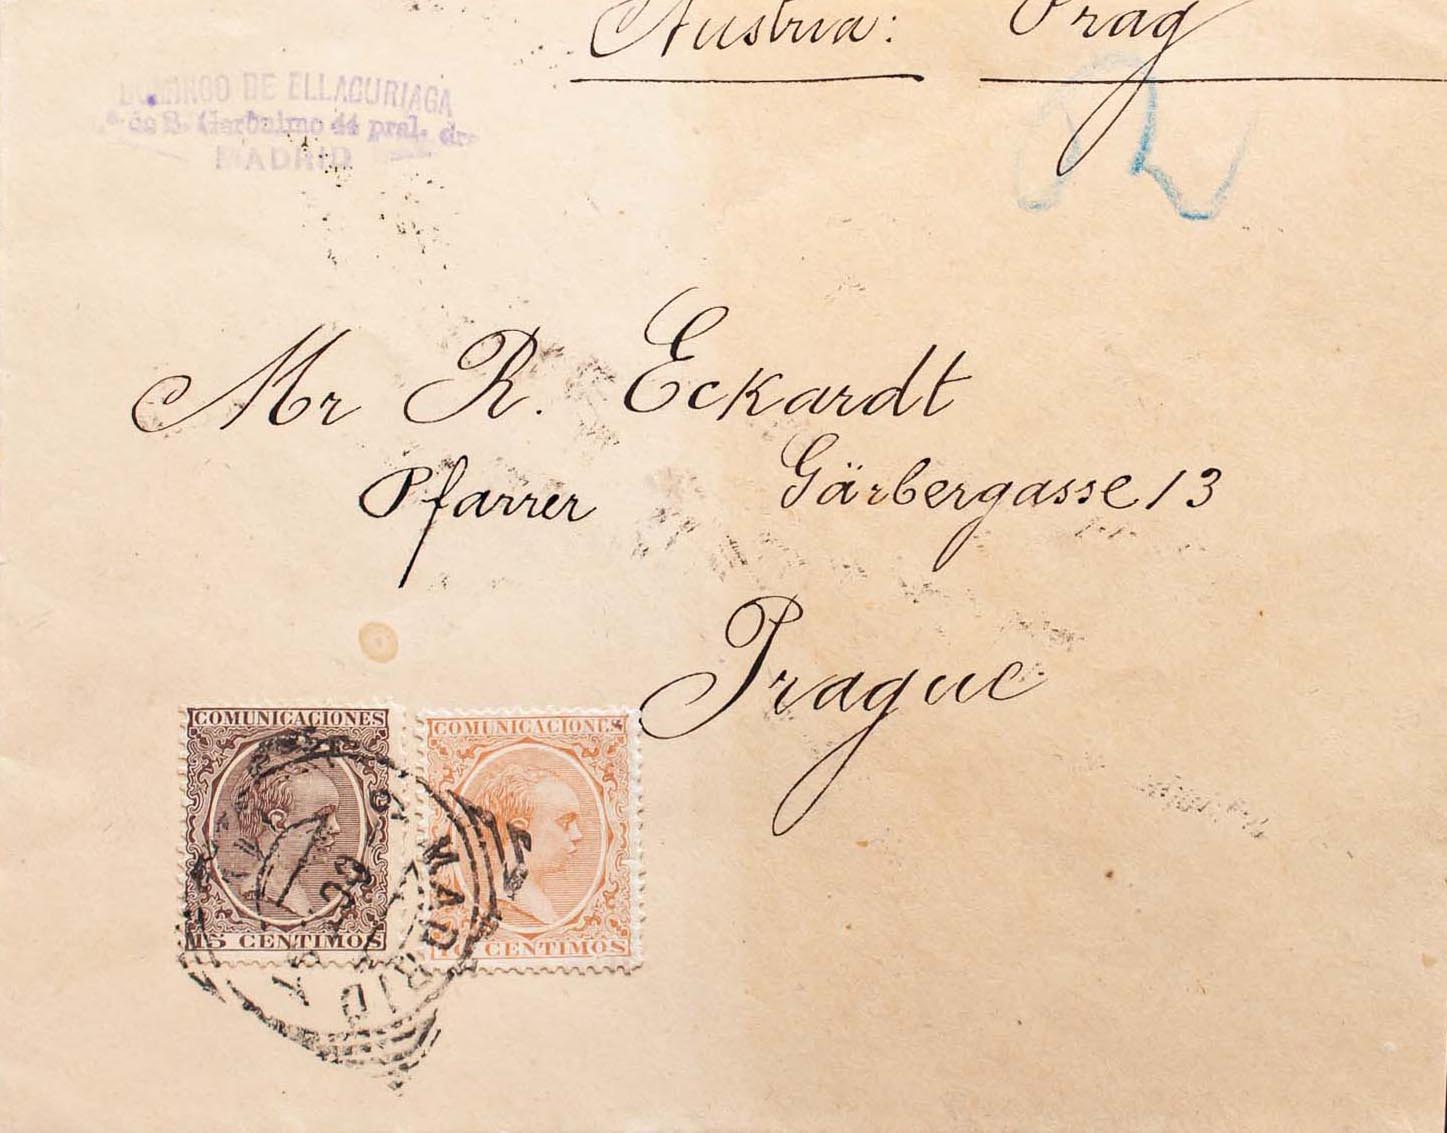 Austria: Prag
DOMINGO DE ELLACURIAGA
de S. Gerónimo 44 pral. dr.
MADRID
Mr R. Eckardt
Pfarrer Gärbergasse 13
Prague
COMUNICACIONES COMUNICACIONES
15 CENTIMOS 10 CENTIMOS
MADRID